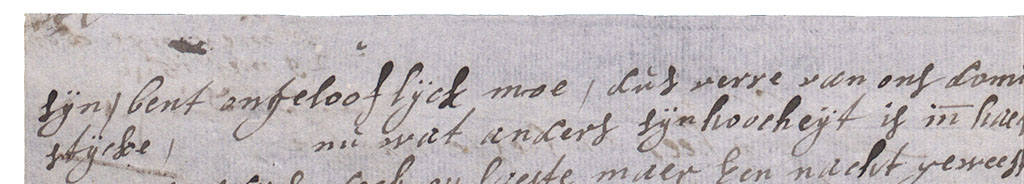 sijn / bent ongelooflijck moe / dus verre van ons domi
stijcke / nu wat anders sijn hoocheijt is in haer
laeste maer een nacht geweest